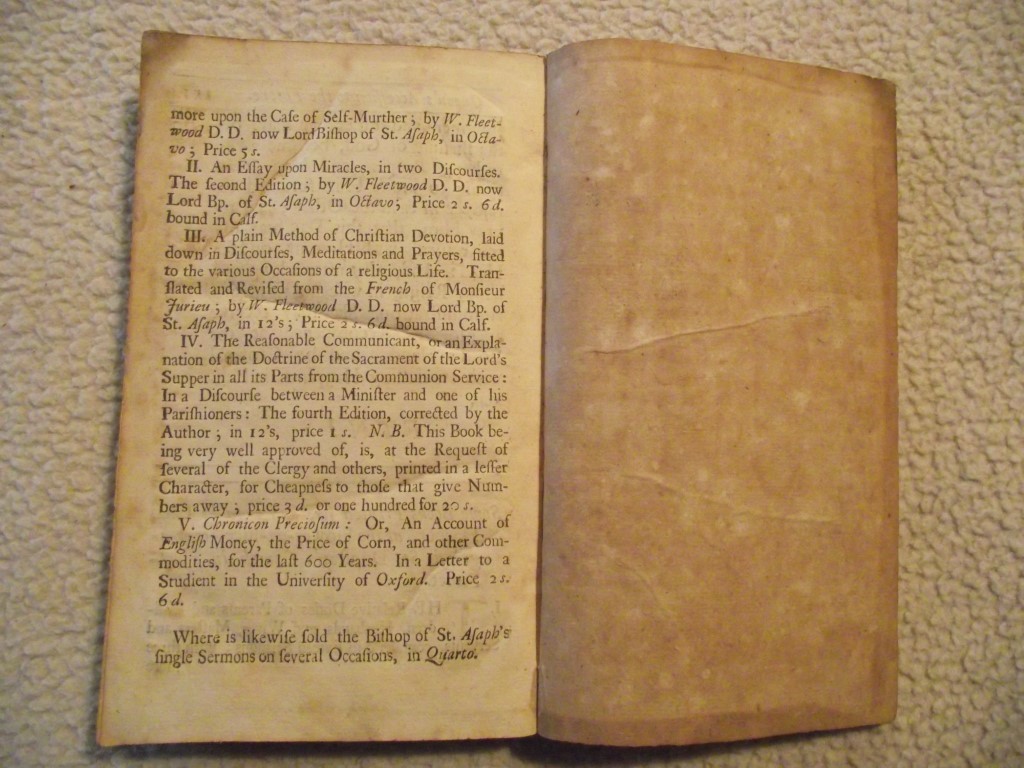 more upon the Caſe of Self-Murther; by W. Fleet-
wood D. D. now Lord Biſhop of St. Aſaph, in Octa-
vo; Price 5 s.
II. An Eſſay upon Miracles, in two Diſcourſes.
The ſecond Edition; by W. Fleetwood D. D. now
Lord Bp. of St. Aſaph, in Octavo; Price 2 s. 6 d.
bound in Calf.
III. A plain Method of Chriſtian Devotion, laid
down in Diſcourſes, Meditations and Prayers, fitted
to the various Occaſions of a religious Life. Tran-
ſlated and Reviſed from the French of Monſieur
Jurieu; by W. Fleetwood D. D. now Lord Bp. of
St. Aſaph, in 12's; Price 2 s. 6 d. bound in Calf.
IV. The Reaſonable Communicant, or an Expla-
nation of the Doctrine of the Sacrament of the Lord's
Supper in all its Parts from the Communion Service:
In a Diſcourſe between a Miniſter and one of his
Pariſhioners: The fourth Edition, corrected by the
Author; in 12's, price 1 s. N. B. This Book be-
ing very well approved of, is, at the Requeſt of
ſeveral of the Clergy and others, printed in a leſſer
Character, for Cheapneſs to thoſe that give Num-
bers away; price 3 d. or one hundred for 20 s.
V. Chronicon Precioſum: Or, An Account of
Engliſh Money, the Price of Corn, and other Com-
modities, for the laſt 600 Years. In a Letter to a
Studient in the Univerſity of Oxford. Price 2 s.
6 d.
Where is likewiſe ſold the Biſhop of St. Aſaph's
ſingle Sermons on ſeveral Occaſions, in Quarto.